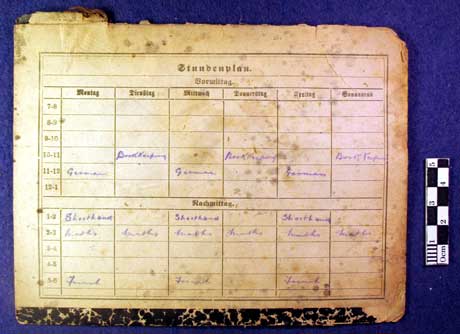 Stundenplan.
Vormittag.
Montag Dienstag Mittwoch Donnerstag Freitag Sonnabend
7-8
8-9
9-10
10-11 Bookkeeping Bookkeeping Bookkeeping
11-12 German German German
12-1
Nachmittag.
1-2 Shorthand Shorthand Shorthand
2-3 Maths Maths Maths Maths Maths Maths
5-6 French French French
0cm 1 2 3 4 5